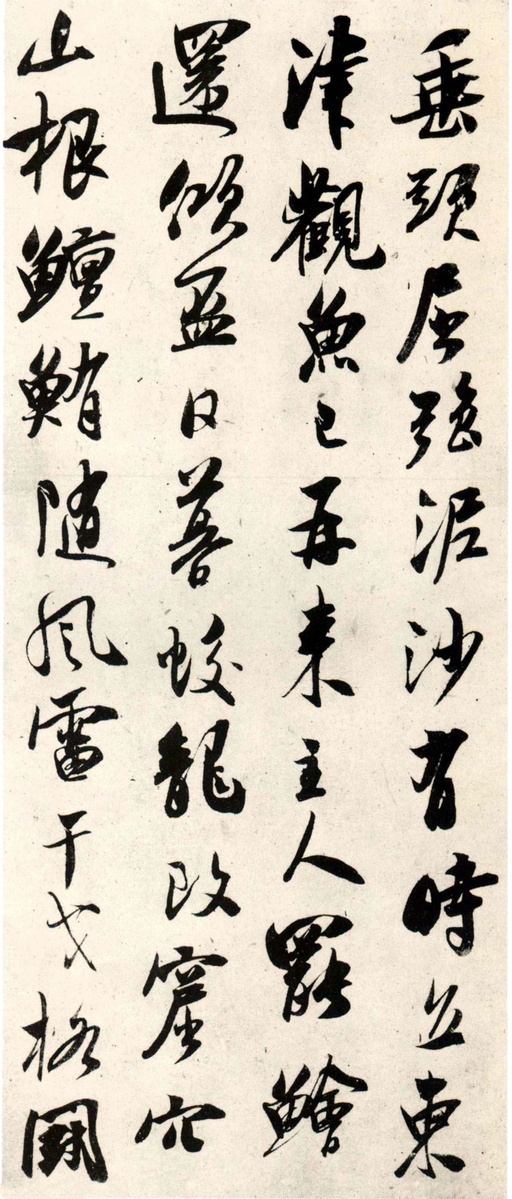 垂頭屈強泥沙有時立東
津觀魚已再来主人罷鱠
還傾盃日暮蛟龍改窟穴
山根鱣鮪隨風雷干戈格鬪